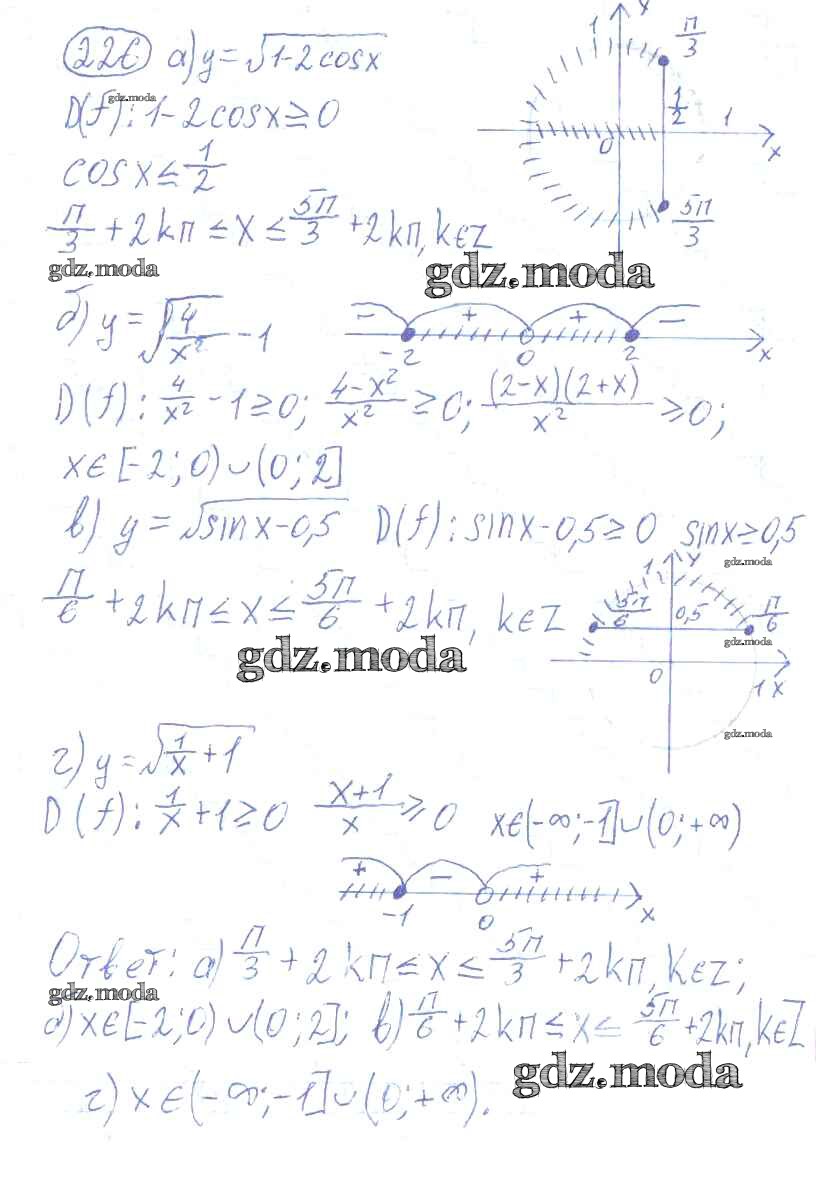 226 а) y = √(1-2cosx)
gdz.moda
D(f): 1-2cosx ≥ 0
cosx ≤ 1/2
π/3 + 2kπ ≤ x ≤ 5π/3 + 2kπ, k∈Z
gdz.moda
1 y π/3
1/2 1
0 x
5π/3
gdz.moda
б) y = √(4/x²) - 1
- + + -
-2 0 2 x
D(f): 4/x² - 1 ≥ 0; (4-x²)/x² ≥ 0; ((2-x)(2+x))/x² ≥ 0;
x∈[-2; 0)∪(0; 2]
в) y = √(sinx-0,5) D(f): sinx-0,5 ≥ 0 sinx ≥ 0,5
π/6 + 2kπ ≤ x ≤ 5π/6 + 2kπ, k∈Z
gdz.moda
1 y gdz.moda
5π/6 0,5 π/6
gdz.moda
0 1 x
gdz.moda
г) y = √(1/x + 1)
D(f): 1/x + 1 ≥ 0 (x+1)/x ≥ 0 x∈(-∞; -1]∪(0; +∞)
+ - +
-1 0 x
Ответ: а) π/3 + 2kπ ≤ x ≤ 5π/3 + 2kπ, k∈Z;
gdz.moda
б) x∈[-2; 0)∪(0; 2]; в) π/6 + 2kπ ≤ x ≤ 5π/6 + 2kπ, k∈Z
gdz.moda
г) x∈(-∞; -1]∪(0; +∞).